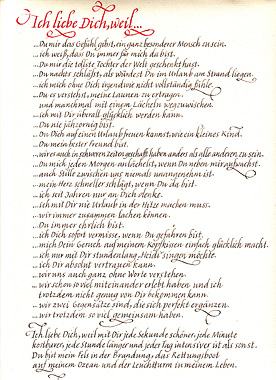 Ich liebe Dich, weil...
...Du mir das Gefühl gibst, ein ganz besonderer Mensch zu sein.
...ich weiß, dass Du immer für mich da bist.
...Du mir die tollste Tochter der Welt geschenkt hast.
...Du nachts schläfst, als würdest Du im Urlaub am Strand liegen.
...ich mich ohne Dich irgendwie nicht vollständig fühle.
...Du es verstehst, meine Launen zu ertragen
und manchmal mit einem Lächeln wegzuwischen.
...ich mit Dir überall glücklich werden kann.
...Du nie jähzornig bist.
...Du Dich auf einen Urlaub freuen kannst, wie ein kleines Kind.
...Du mein bester Freund bist.
...wir es auch in schweren Zeiten geschafft haben anders als alle anderen zu sein.
...Du mich jeden Morgen anlächelst, wenn Du neben mir aufwachst.
...auch Stille zwischen uns niemals unangenehm ist.
...mein Herz schneller schlägt, wenn Du da bist.
...ich seit Jahren nur an Dich denke.
...ich mit Dir nie Urlaub in der Hitze machen muss.
...wir immer zusammen lachen können.
...Du immer ehrlich bist.
...ich Dich sofort vermisse, wenn Du gefahren bist.
...mich Dein Geruch auf meinem Kopfkissen einfach glücklich macht.
...ich nur mit Dir stundenlang „Heidi" singen möchte.
...ich Dir absolut vertrauen kann.
...wir uns auch ganz ohne Worte verstehen.
...wir schon so viel miteinander erlebt haben und ich
trotzdem nicht genug von Dir bekommen kann.
...wir zwei Gegensätze sind, die sich perfekt ergänzen.
...wir trotzdem so viel gemeinsam haben.
Ich liebe Dich, weil mit Dir jede Sekunde schöner, jede Minute
kostbarer, jede Stunde länger und jeder Tag intensiver ist als sonst.
Du bist mein Fels in der Brandung, das Rettungsboot
auf meinem Ozean und der Leuchtturm in meinem Leben.